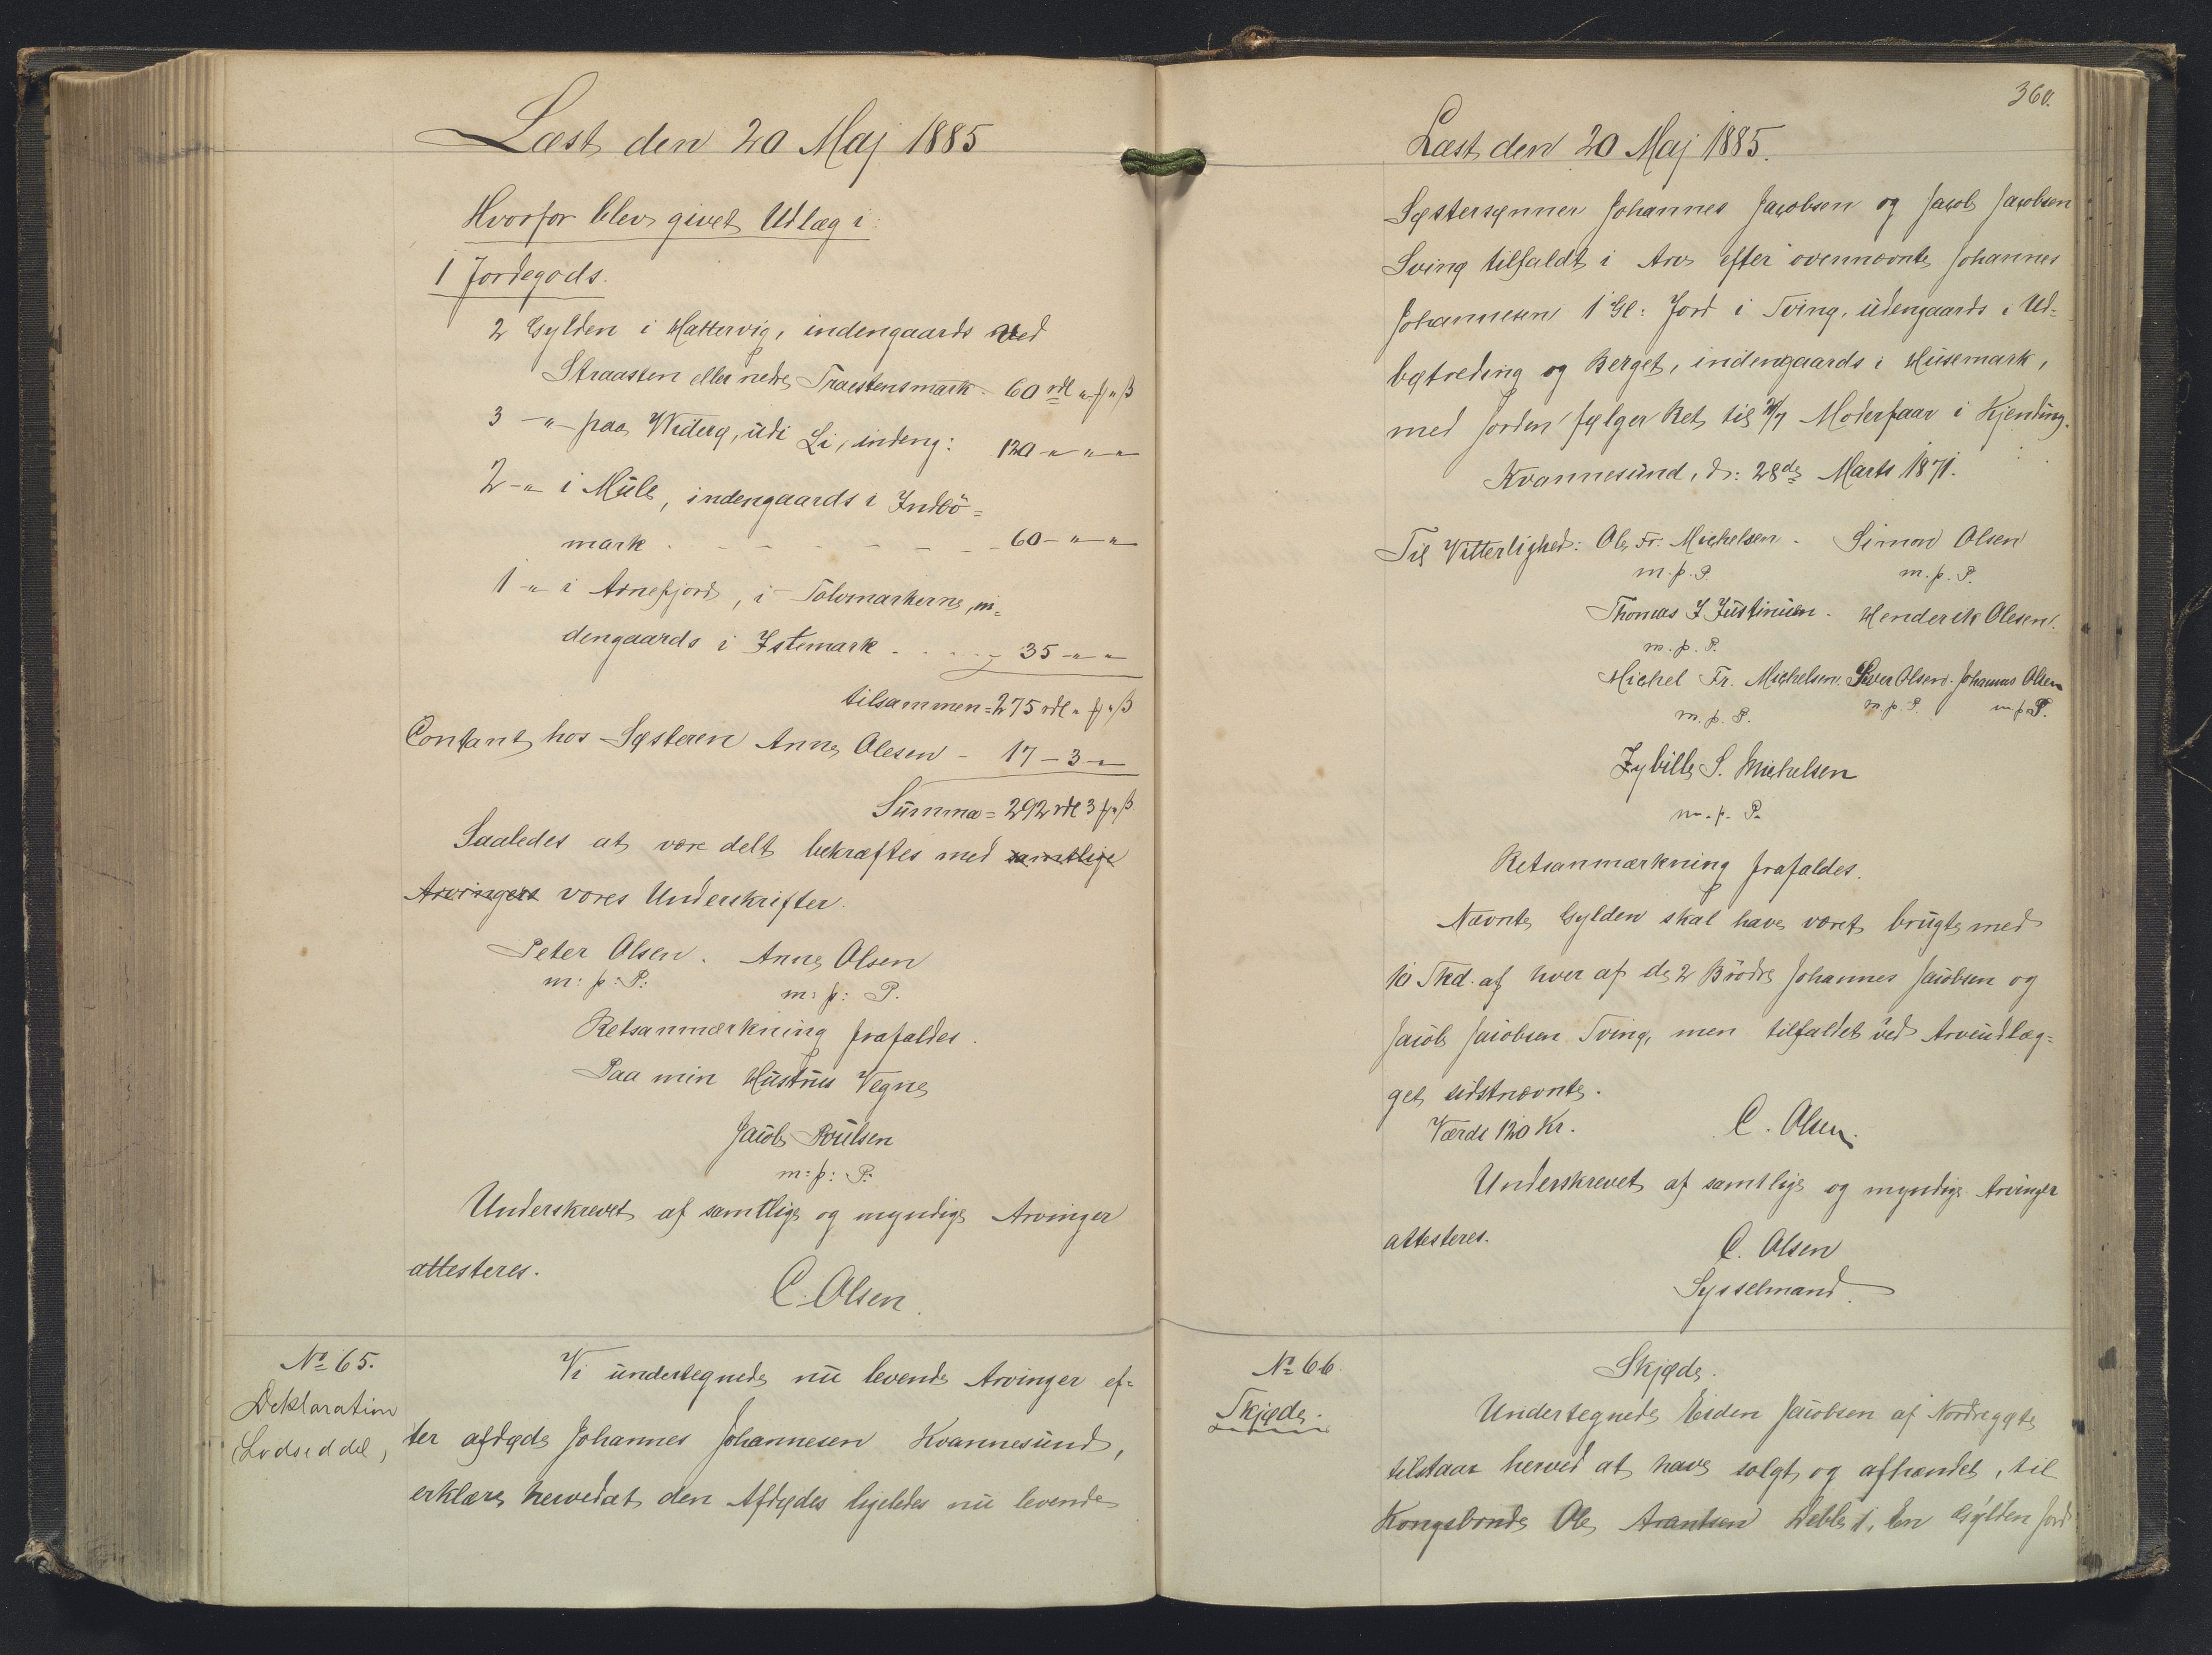 Læst den 20 Maj 1885
Hvorfor blev givet Udlæg i:
1 Jordegods.
2 Gylden i Hattervig, indengaards ved
Straasten eller nedre Traestensmark - 60 rdl „ ƒ „ ß
3 -„- paa Viderø, udi Li, indeng: 120 - „ - „
2 -„- i Mule, indengaards i Indbö=
mark - - - - - - 60 - „ - „
1 -„- i Arnefjord, i Tolvmarkerne, in=
dengaards i Istemark - - - - 35 - „ - „
tilsammen = 275 rdl „ ƒ „ ß
Contant hos Søsteren Anne Olesen - 17 - 3 - „
Summa = 292 rdl 3 ƒ „ ß
Saaledes at være delt bekræftes med samtlige
Arvingers vores Underskrifter.
Peter Olsen. Anne Olsen
m: p: P: m: p: P.
Retsanmærkning frafaldes.
Paa min Hustrus Vegne
Jacob Poulsen
m: p: P:
Underskrevet af samtlige og myndige Arvinger
attesteres.
C. Olsen.
№ 65.
Deklaration
(Lodseddel)
Vi undertegnede nu levende Arvinger ef=
ter afdøde Johannes Johannesen Kvannesund,
erklære herved at den Afdødes ligeledes nu levende
360.
Læst den 20 Maj 1885.
Søstersønner Johannes Jacobsen og Jacob Jacobsen
Tving tilfaldt i Arv efter ovennævnte Johannes
Johannesen 1 Gl: Jord i Tving, udengaards i Ud=
bøtreding og Berget, indengaards i Husemark,
med Jorden følger Ret til Moderfaar i Hjending.
Kvannesund, d: 28de Marts 1871.
Til Vitterlighed: Ole Fr: Michelsen. Simon Olsen
m. p. P. m. p. P.
Thomas J Justinusen. Henderik Olesen.
m. p. P.
Michel Fr. Michelsen. Siver Olsen. Johannes Olsen
m. p. P. m. p. P. m. p. P.
Zybille S. Michelsen
m. p. P.
Retsanmærkning frafaldes.
Nævnte Gylden skal have været brugt med
10 Skd. af hver af de 2 Brödre Johannes Jacobsen og
Jacob Jacobsen Tving, men tilfaldet ved Arveudlæg=
get sidstnævnte.
Værdi 120 Kr. C. Olsen.
Underskrevet af samtlige og myndige Arvinger
attesteres.
C. Olsen
Sysselmand.
№ 66.
Skjøde.
Skjøde.
Undertegnede Eiden Jacobsen af Nordregøte
tilstaar herved at have solgt og afhændet, til
Kongsbonde Ole Arantsen Deble 1, en Gylden Jord